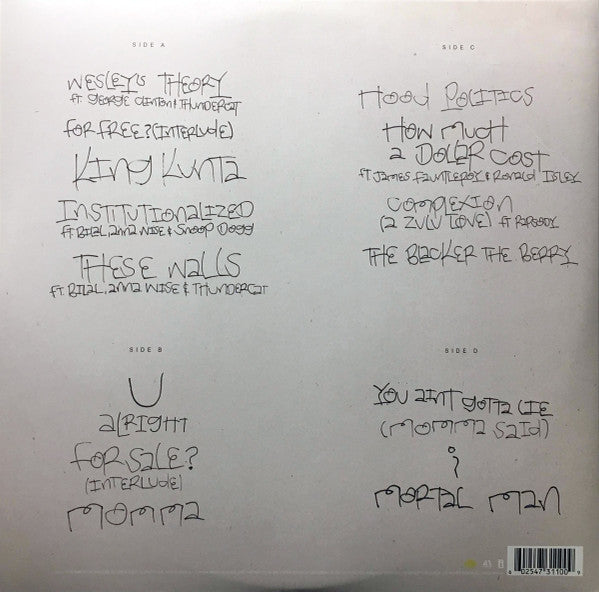 SIDE A
WESLEY'S THEORY
ft. GEORGE CLINTON & THUNDERCAT
FOR FREE? (INTERLUDE)
KING KUNTA
INSTITUTIONALIZED
ft BILAL, ANNA WISE & SNOOP DOGG
THESE WALLS
ft. BILAL, ANNA WISE & THUNDERCAT
SIDE B
U
ALRIGHT
FOR SALE?
(INTERLUDE)
MOMMA
SIDE C
HOOD POLITICS
HOW MUCH
A DOLLAR COST
ft JAMES FAUNTLEROY & RONALD ISLEY
COMPLEXION
(A ZULU LOVE) ft RAPSODY
THE BLACKER THE BERRY
SIDE D
YOU AINT GOTTA LIE
(MOMMA SAID)
i
MORTAL MAN
6 02547 31100 9